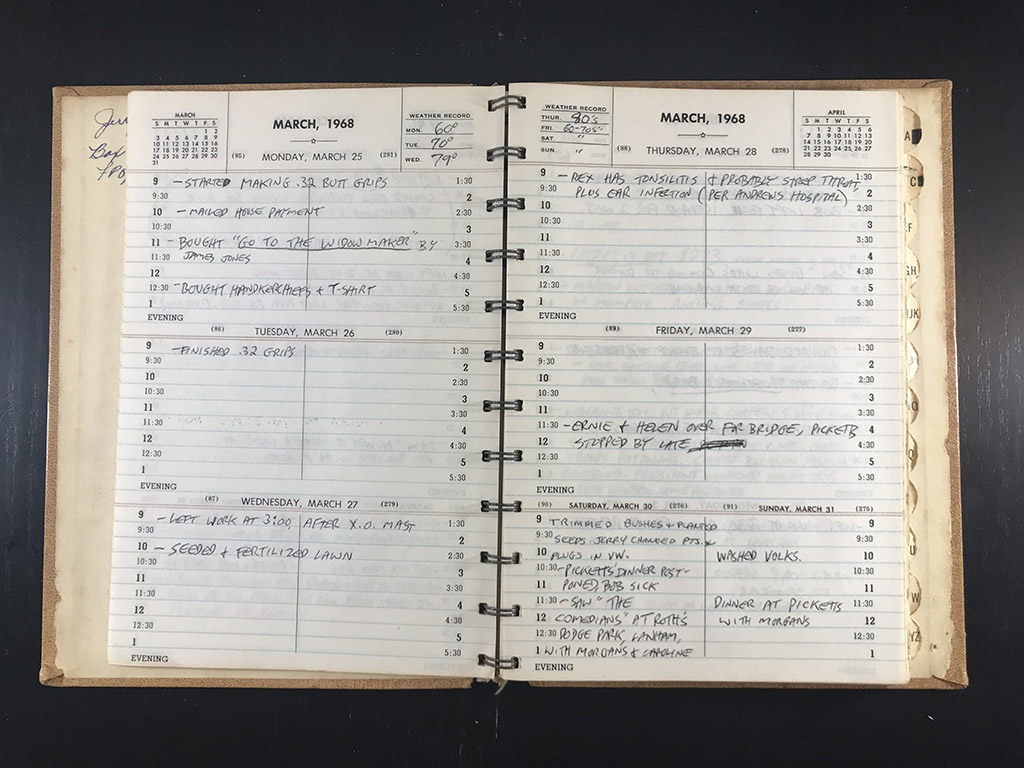 Jerr
Box
MARCH
S M T W T F S
1 2
3 4 5 6 7 8 9
10 11 12 13 14 15 16
17 18 19 20 21 22 23
24 25 26 27 28 29 30
31
MARCH, 1968
WEATHER RECORD
MON. 60°
TUE. 70°
WED. 79°
(85) MONDAY, MARCH 25 (281)
9 - STARTED MAKING .32 BUTT GRIPS 1:30
9:30 2
10 - MAILED HOUSE PAYMENT 2:30
10:30 3
11 - BOUGHT "GO TO THE WIDOW MAKER" BY 3:30
11:30 JAMES JONES 4
12 4:30
12:30 - BOUGHT HANDKERCHIEFS & T-SHIRT 5
1 5:30
EVENING
(86) TUESDAY, MARCH 26 (280)
9 - FINISHED .32 GRIPS 1:30
9:30 2
10 2:30
10:30 3
11 3:30
11:30 4
12 4:30
12:30 5
1 5:30
EVENING
(87) WEDNESDAY, MARCH 27 (279)
9 - LEFT WORK AT 3:00, AFTER X.O. MAST 1:30
9:30 2
10 - SEEDED & FERTILIZED LAWN 2:30
10:30 3
11 3:30
11:30 4
12 4:30
12:30 5
1 5:30
EVENING
WEATHER RECORD
THUR. 80's
FRI. 60-70s"
SAT. "
SUN. "
MARCH, 1968
APRIL
S M T W T F S
1 2 3 4 5 6
7 8 9 10 11 12 13
14 15 16 17 18 19 20
21 22 23 24 25 26 27
28 29 30
(88) THURSDAY, MARCH 28 (278)
9 - REX HAS TONSILITIS & PROBABLY STREP THROAT, 1:30
9:30 PLUS EAR INFECTION (PER ANDREWS HOSPITAL) 2
10 2:30
10:30 3
11 3:30
11:30 4
12 4:30
12:30 5
1 5:30
EVENING
(89) FRIDAY, MARCH 29 (277)
9 1:30
9:30 2
10 2:30
10:30 3
11 3:30
11:30 - ERNIE & HELEN OVER FOR BRIDGE, PICKETTS 4
12 STOPPED BY LATE 4:30
12:30 5
1 5:30
EVENING
(90) SATURDAY, MARCH 30 (276)
9 TRIMMED BUSHES & PLANTED
9:30 SEEDS. JERRY CHANGED PTS. &
10 PLUGS IN VW.
10:30 - PICKETTS' DINNER POST-
11 PONED, BOB SICK
11:30 - SAW "THE
12 COMEDIANS" AT ROTH'S
12:30 DODGE PARK, LANHAM,
1 WITH MORGANS & CAROLINE
EVENING
(91) SUNDAY, MARCH 31 (275)
9
9:30
WASHED VOLKS. 10
10:30
11
DINNER AT PICKETTS 11:30
WITH MORGANS 12
12:30
1
A
C
EF
GH
IJK
O
Q
U
W
YZ